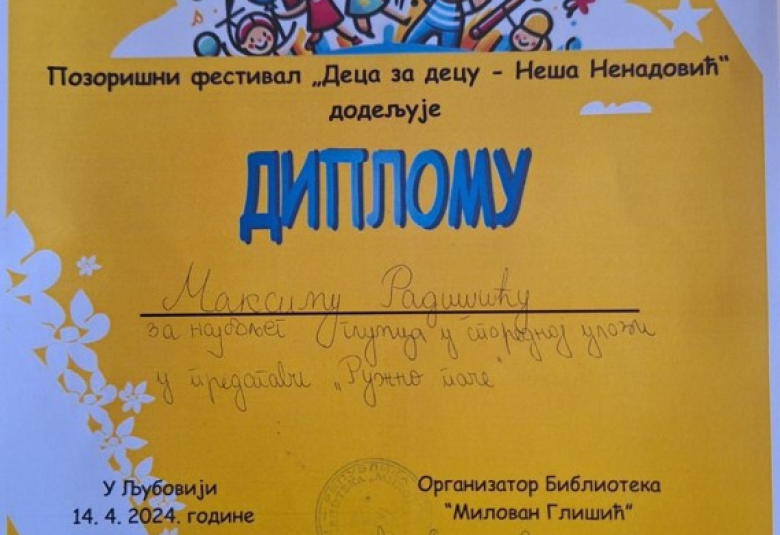 Позоришни фестивал „Деца за децу - Неша Ненадовић“
додељује
ДИПЛОМУ
Максиму Радишићу
за најбољег глумца у споредној улози
у представи „Ружно паче“
У Љубовији
14. 4. 2024. године
Организатор Библиотека
“Милован Глишић”